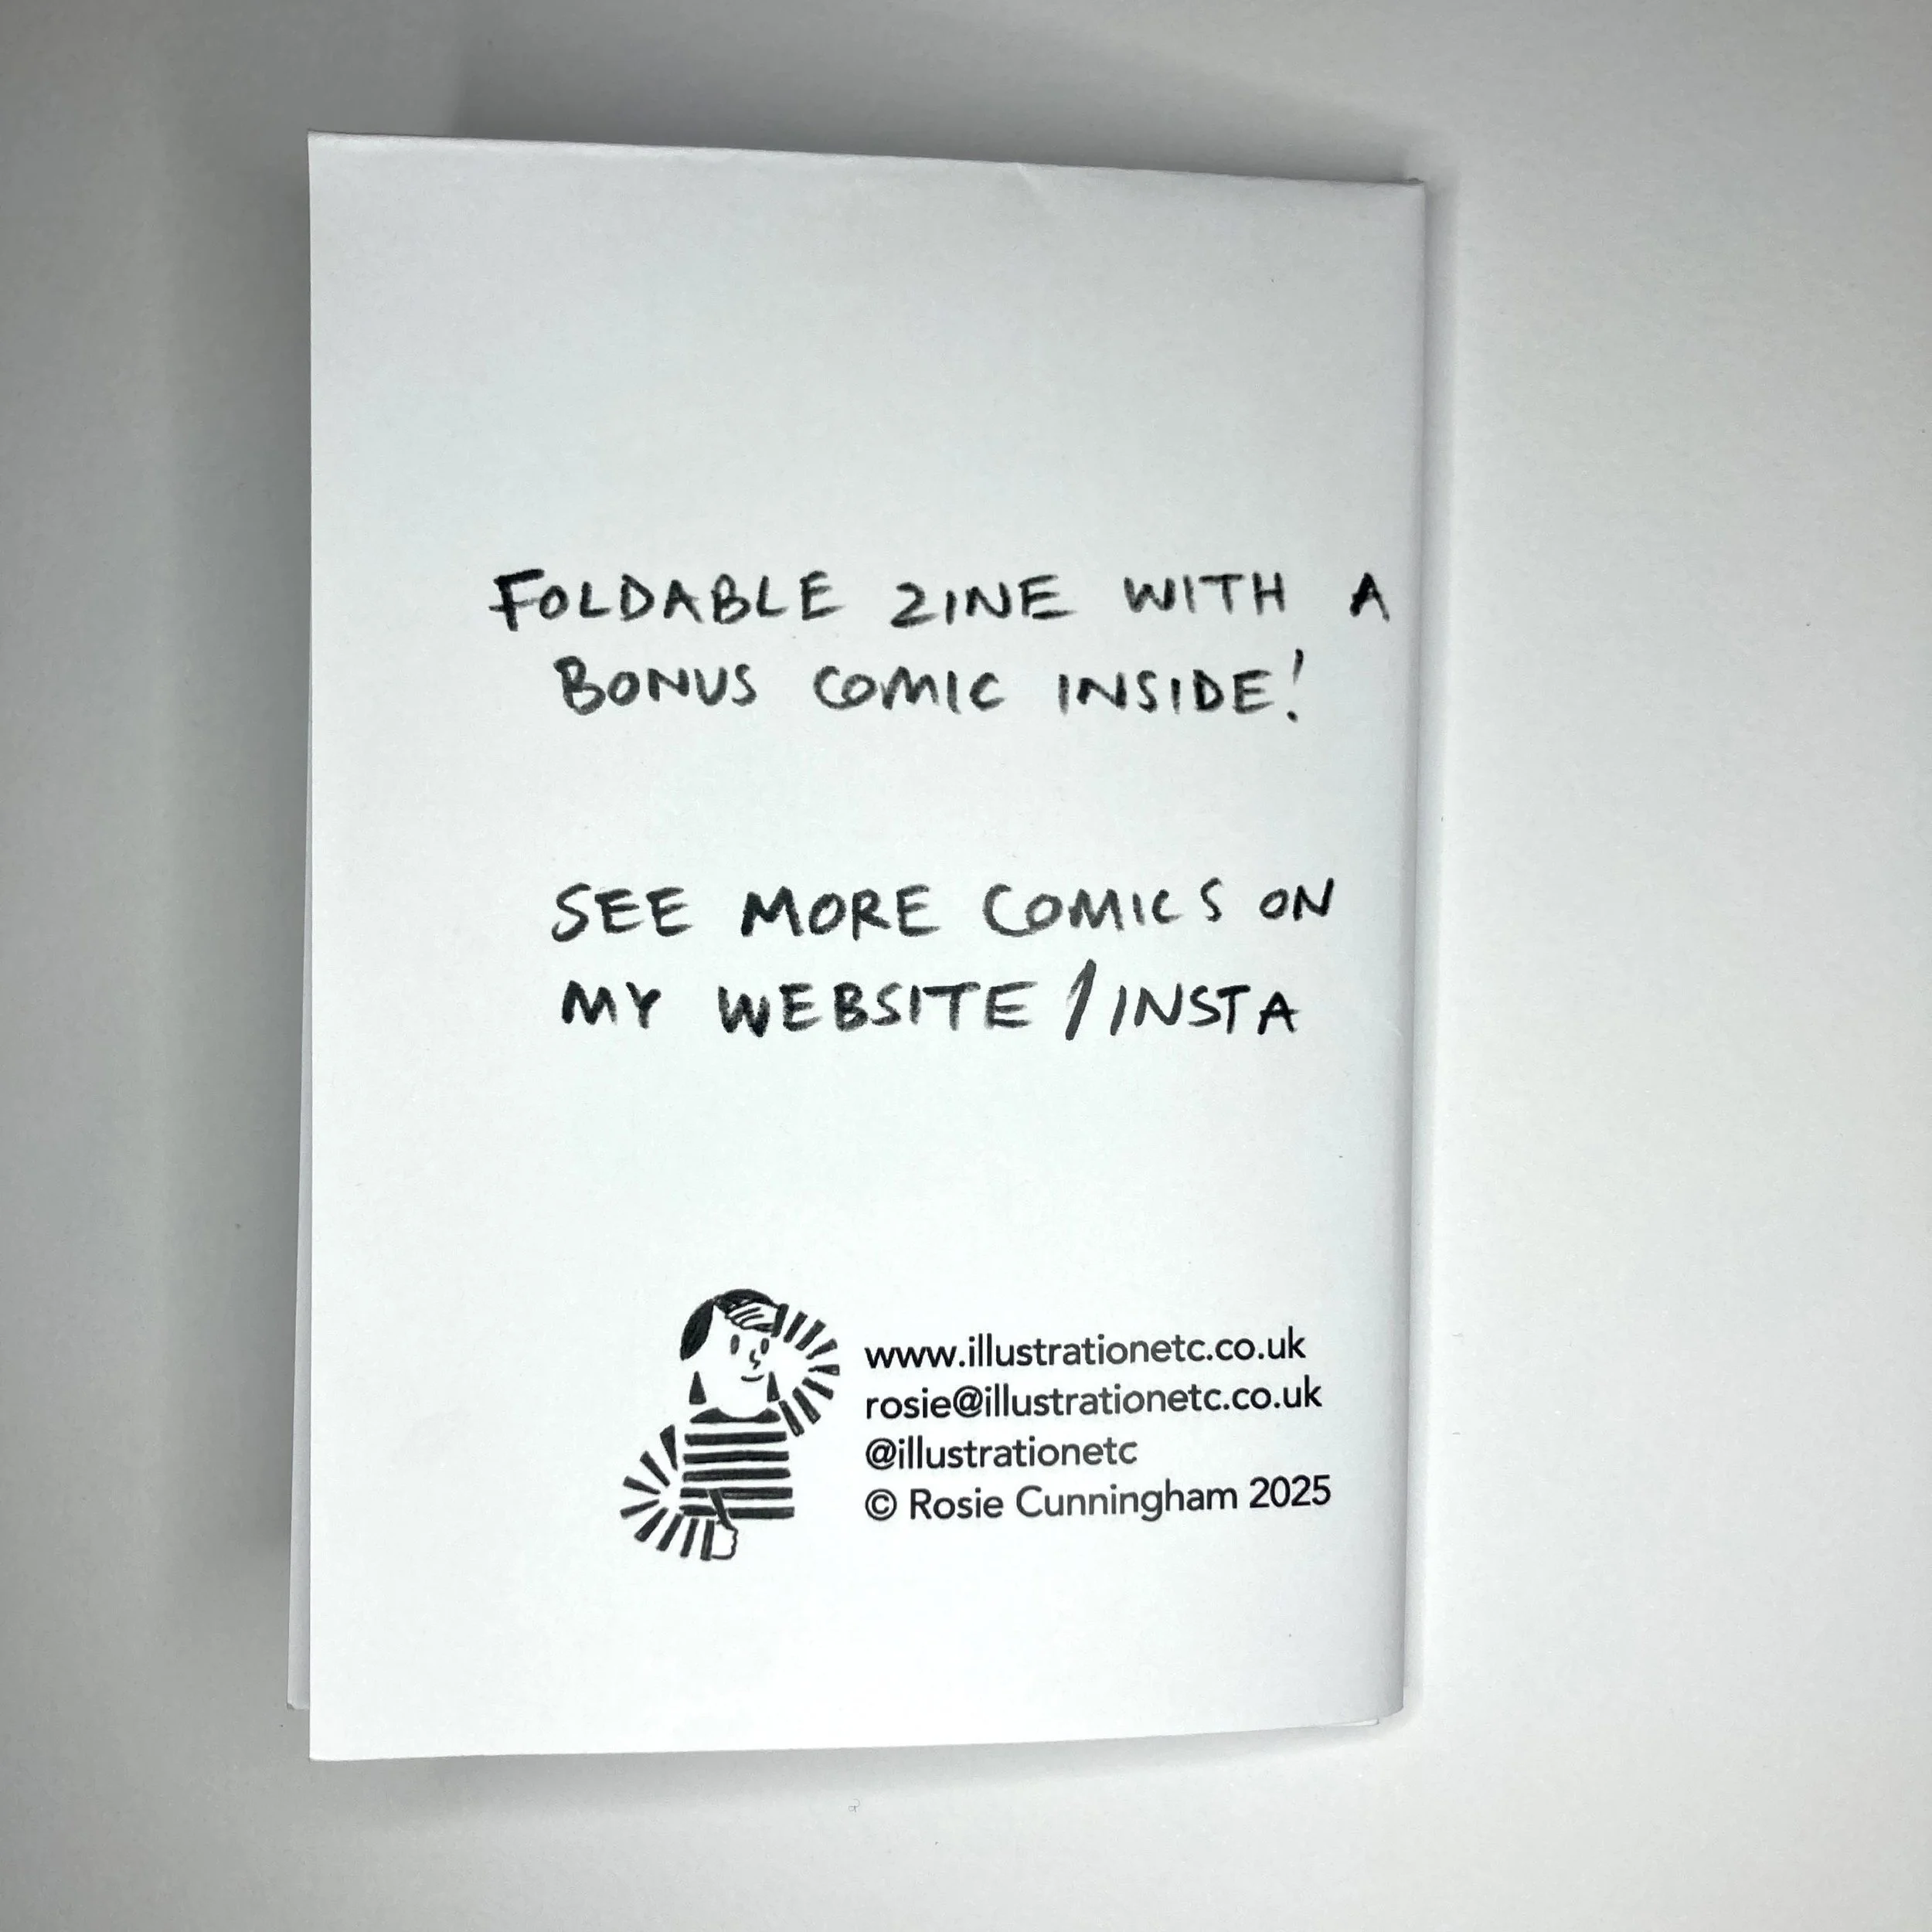 FOLDABLE ZINE WITH A
BONUS COMIC INSIDE!
SEE MORE COMICS ON
MY WEBSITE / INSTA
www.illustrationetc.co.uk
rosie@illustrationetc.co.uk
@illustrationetc
© Rosie Cunningham 2025